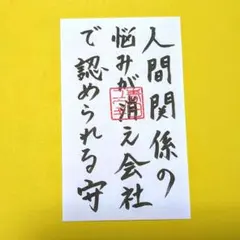 人間関係の
悩みが消え会社
で認められる守